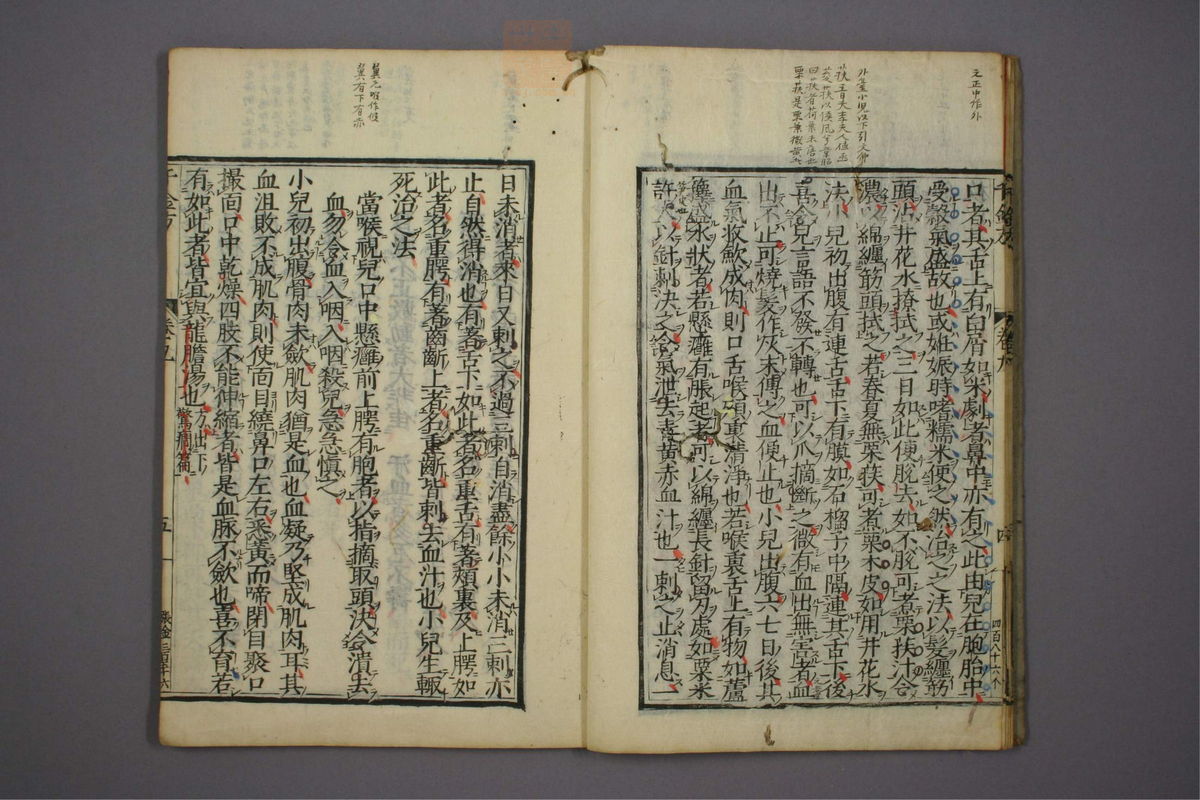 口者其舌上有白屑如米劇者鼻中亦有之此由兒在胞胎中
受穀氣盛故也或妊娠時嗜糯米使之然治之之法以髮纏筯
頭沾井花水撩拭之三日如此便脫去如不脫可煮栗扶汁令
濃以綿纏筯頭拭之若春夏無栗扶可煮栗木皮如用井花水
法小兒初出腹有連舌舌下有膜如石榴子中隔連其舌下後
喜令兒言語不發不轉也可以爪摘斷之微有血出無害若血
出不止可燒髮作灰末傅之血便止也小兒出腹六七日後其
血氣收斂成肉則口舌喉頰裏清淨也若喉裏舌上有物如蘆
籜盛水狀者若懸癰有脹起者可以綿纏長針留刃處如粟米
許大以針刺決之令氣泄去青黃赤血汁也一刺之止消息一
四百八十六个
日未消者來日又刺之不過三刺自消盡餘小小未消三刺亦
止自然得消也有著舌下如此者名重舌有著頰裏及上腭如
此者名重腭有著齒齗上者名重齗皆刺去血汁也小兒生輒
死治之法
當候視兒口中懸癰前上腭有胞者以指摘取頭決令潰去
血勿令血入咽入咽殺兒急急慎之
小兒初出腹骨肉未斂肌肉猶是血也血凝乃堅成肌肉耳其
血沮敗不成肌肉則使面目繞鼻口左右悉黃而啼閉目聚口
撮面口中乾燥四肢不能伸縮者皆是血脈不斂也喜不育若
有如此者皆宜與龍膽湯也方出下驚癇篇
千金方
卷五
五